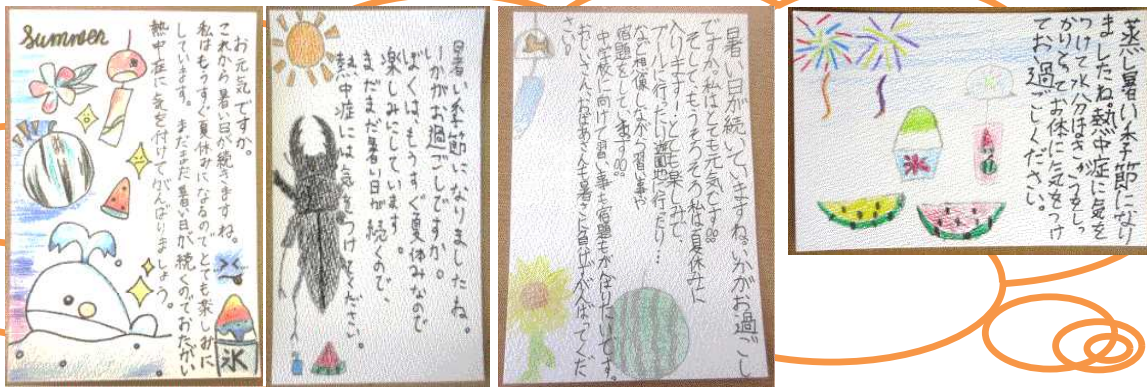 Summer
お元気ですか。
これから暑い日が続きますね。
私はもうすぐ夏休みになるのでとても楽しみに
しています。まだまだ暑い日が続くのでおたがい
熱中症に気を付けてがんばりましょう。
氷
暑い季節になりましたね。
いかがお過ごしですか。
ぼくは、もうすぐ夏休みなので
楽しみにしています。
まだまだ暑い日が続くので、
熱中症には気をつけてください。
暑い日が続いていますね。いかがお過ごし
ですか。私はとても元気です!!
そして、もうそろそろ私は夏休みに
入りまーす!とても楽しみで、
プールに行ったり遊園地に行ったり…
など想像しながら習い事や
宿題をしています!!
中学校に向けて習い事も宿題もがんばりたいです。
おじいさん、おばあさんも暑さに負けずがんばってくだ
さい。
蒸し暑い季節になり
ましたね。熱中症に気を
つけて水分ほきゅうをしっ
かりとってお体に気をつけ
てお過ごしください。
氷